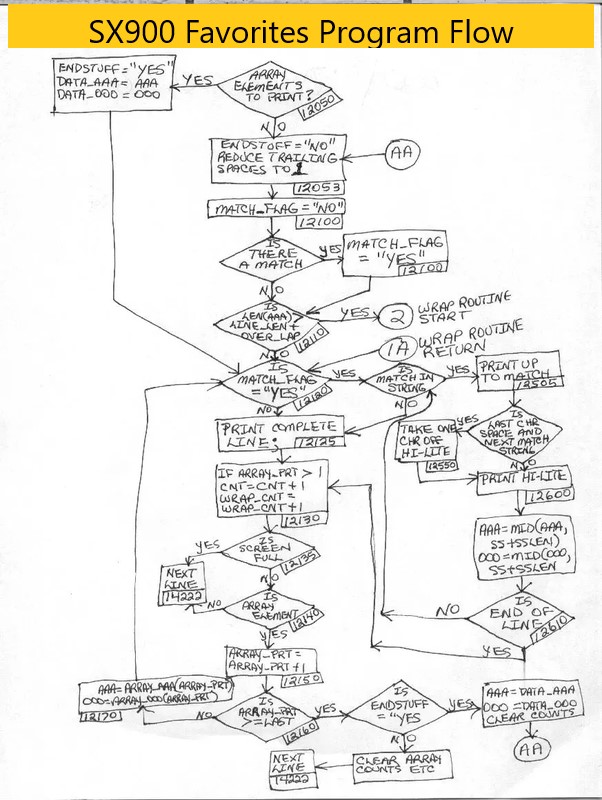 SX900 Favorites Program Flow
ENDSTUFF="YES"
DATA_AAA= AAA
DATA_OOO = OOO
YES
ARRAY
ELEMENTS
TO PRINT?
12050
NO
ENDSTUFF="NO"
REDUCE TRAILING
SPACES TO 1
12053
AA
MATCH_FLAG="NO"
12100
IS
THERE
A MATCH
YES
MATCH_FLAG
= "YES"
12100
NO
IS
LEN(AAA)
LINE_LEN+
OVER_LAP
12110
YES
2
WRAP ROUTINE
START
1A
WRAP ROUTINE
RETURN
NO
IS
MATCH_FLAG
="YES"
12120
YES
IS
MATCH IN
STRING
YES
PRINT UP
TO MATCH
12505
NO
NO
PRINT COMPLETE
LINE;
12125
IS
LAST CHR
SPACE AND
NEXT MATCH
STRING
YES
TAKE ONE
CHR OFF
HI-LITE
12550
NO
PRINT HI-LITE
12600
IF ARRAY_PRT > 1
CNT=CNT+1
WRAP_CNT=
WRAP_CNT+1
12130
AAA=MID(AAA,
SS+SSLEN)
OOO=MID(OOO,
SS+SSLEN
YES
IS
SCREEN
FULL
12135
NEXT
LINE
14222
NO
NO
IS
ARRAY
ELEMENT
12140
YES
IS
END OF
LINE
12610
NO
YES
ARRAY_PRT=
ARRAY_PRT+1
12150
AAA=ARRAY_AAA(ARRAY_PRT)
OOO=ARRAY_OOO(ARRAY_PRT)
12170
NO
IS
ARRAY_PRT
>=LAST
12160
YES
IS
ENDSTUFF
="YES
YES
AAA=DATA_AAA
OOO=DATA_OOO
CLEAR COUNTS
AA
NO
CLEAR ARRAY
COUNTS ETC
NEXT
LINE
14222